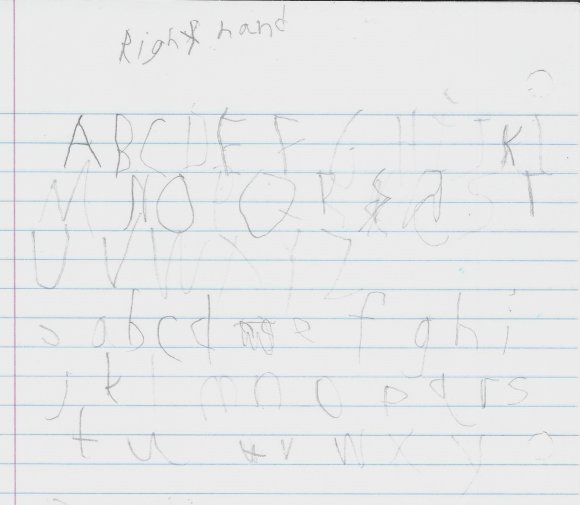 Right hand
A B C D E F G H I J K L
M N O P Q R S T
U V W X Y Z
a b c d e f g h i
j k l m n o p q r s
t u v w x y